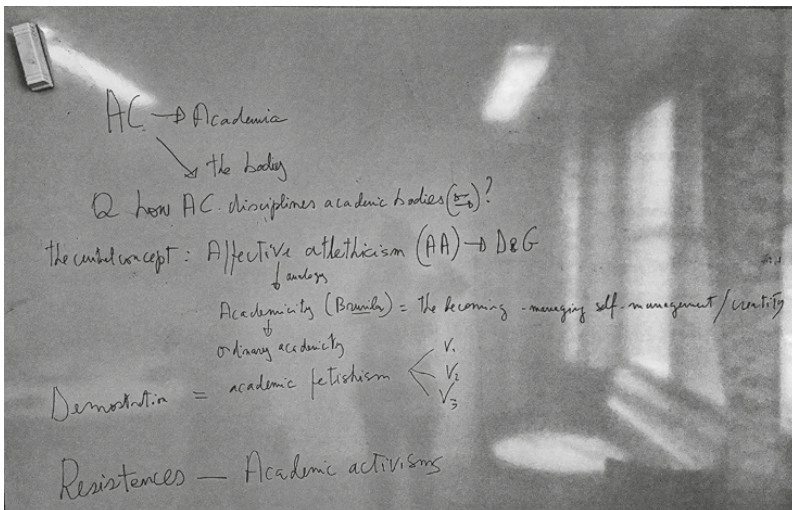 AC → Academia
↘ the bodies
Q how AC disciplines academic bodies ( )?
the central concept: Affective athlethicism (AA) → D&G
↓ analogy
Academicity ( ) = the becoming - managing self-management/creativity
↓
ordinary academicity
Demostration = academic fetishism < V1
V2
V3
Resistences — Academic activisms